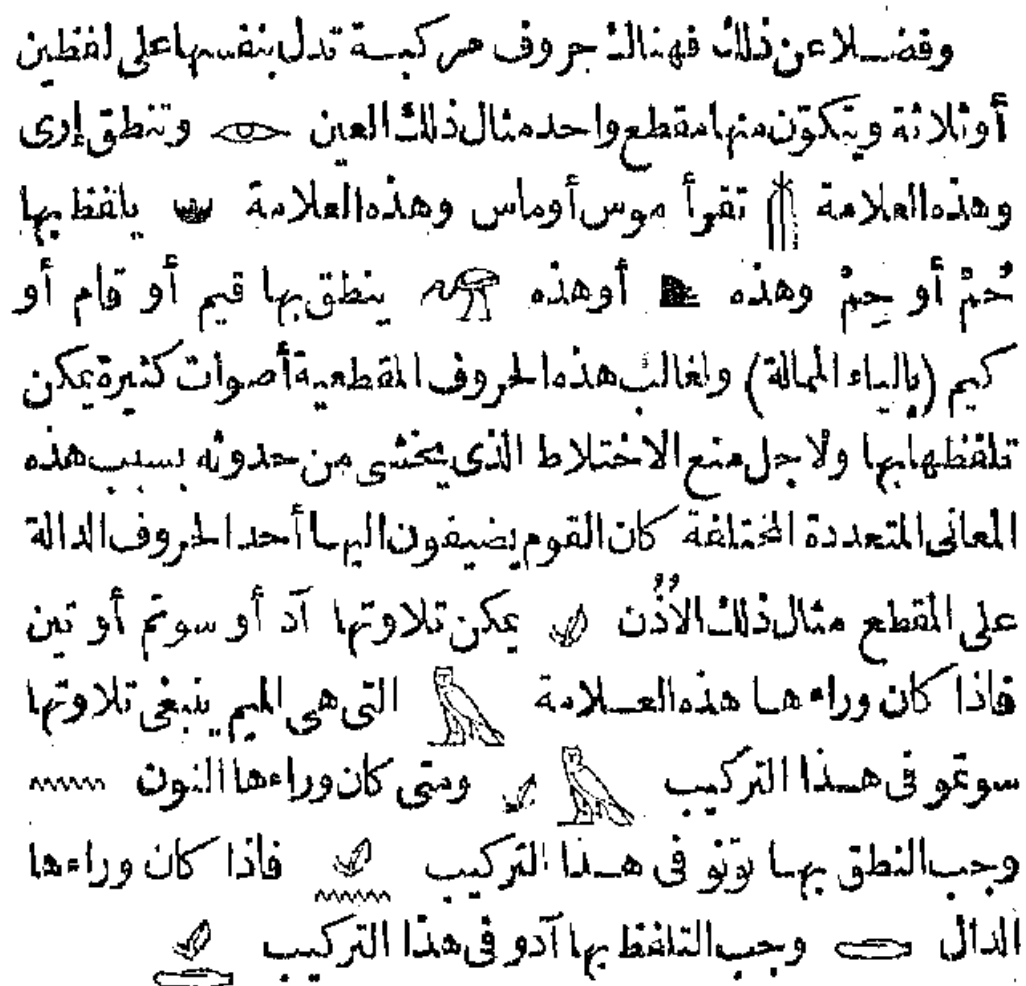 وفضلا عن ذلك فهناك حروف مركبة تدل بنفسها على لفظين
أو ثلاثة ويتكوّن منها مقطع واحد مثال ذلك العين 𓁹 وتنطق إرى
وهذه العلامة 𓄟 تقرأ موس أو ماس وهذه العلامة يلفظ بها
حُمْ أو حِمْ وهذه 𓆎 أو هذه 𓅠 ينطق بها قيم أو قام أو
كيم (بالياء الممالة) ولغالب هذه الحروف المقطعية أصوات كثيرة يمكن
تلفظها بها ولاجل منع الاختلاط الذى يخشى من حدوثه بسبب هذه
المعانى المتعددة المختلفة كان القوم يضيفون اليها أحد الحروف الدالة
على المقطع مثال ذلك الأُذُن 𓄔 يمكن تلاوتها آد أو سوتم أو تين
فاذا كان وراءها هذه العلامة 𓅓 التى هى الميم ينبغى تلاوتها
سوتمو فى هذا التركيب 𓄔𓅓 ومتى كان وراءها النون 𓈖
وجب النطق بها توتو فى هذا التركيب 𓄔𓈖 فاذا كان وراءها
الدال 𓂧 وجب التلفظ بها آدو فى هذا التركيب 𓄔𓂧